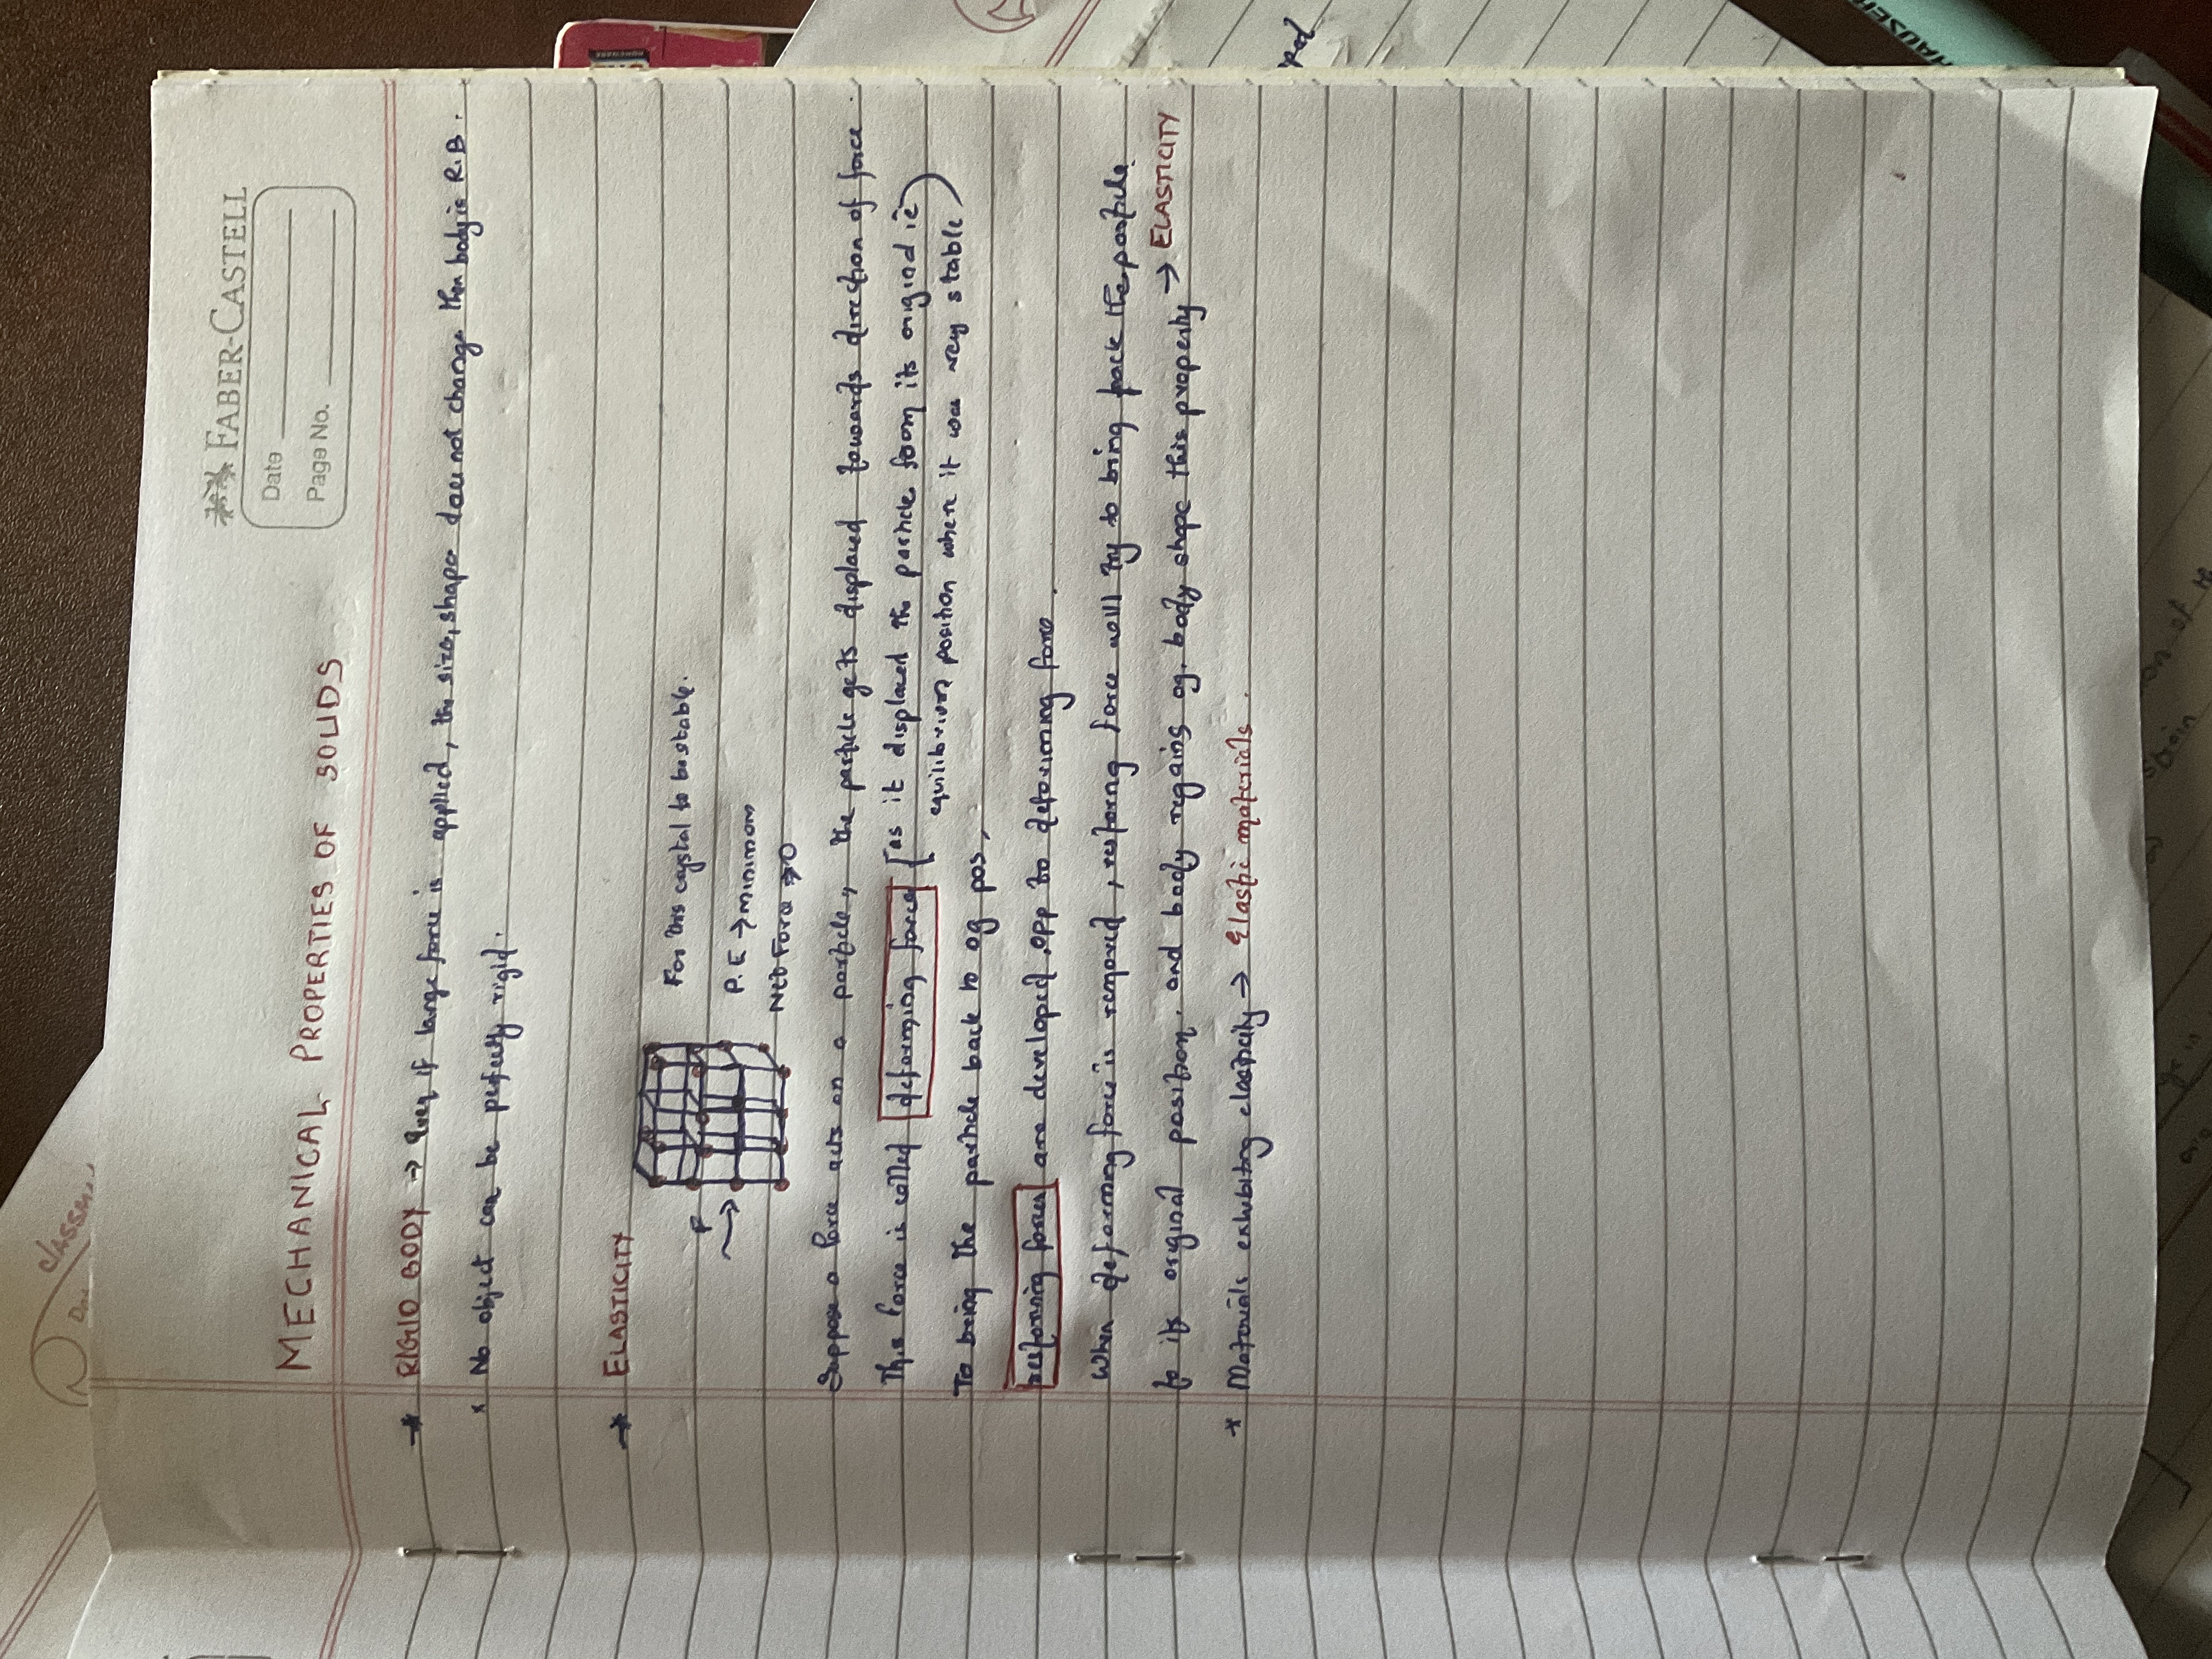 FABER-CASTELL
Date
Page No.
MECHANICAL PROPERTIES OF SOLIDS
RIGID BODY → Even if large force is applied, the size, shape does not change then body is R.B.
x No object can be perfectly rigid.
ELASTICITY
For this crystal to be stable.
F
P.E → minimum
Net Force → 0
Suppose a force acts on a particle, the particle gets displaced towards direction of force
This force is called deforming force [as it displaced the particle from its original ie
equilibrium position when it was very stable)
To bring the particle back to og pos,
restoring forces are developed, opp to deforming force.
When deforming force is removed, restorng force will try to bring back the particle
to its original position. and body regains og. body shape this property → ELASTICITY
* Materials exhibitng elasticity → Elastic materials.
HAUSER